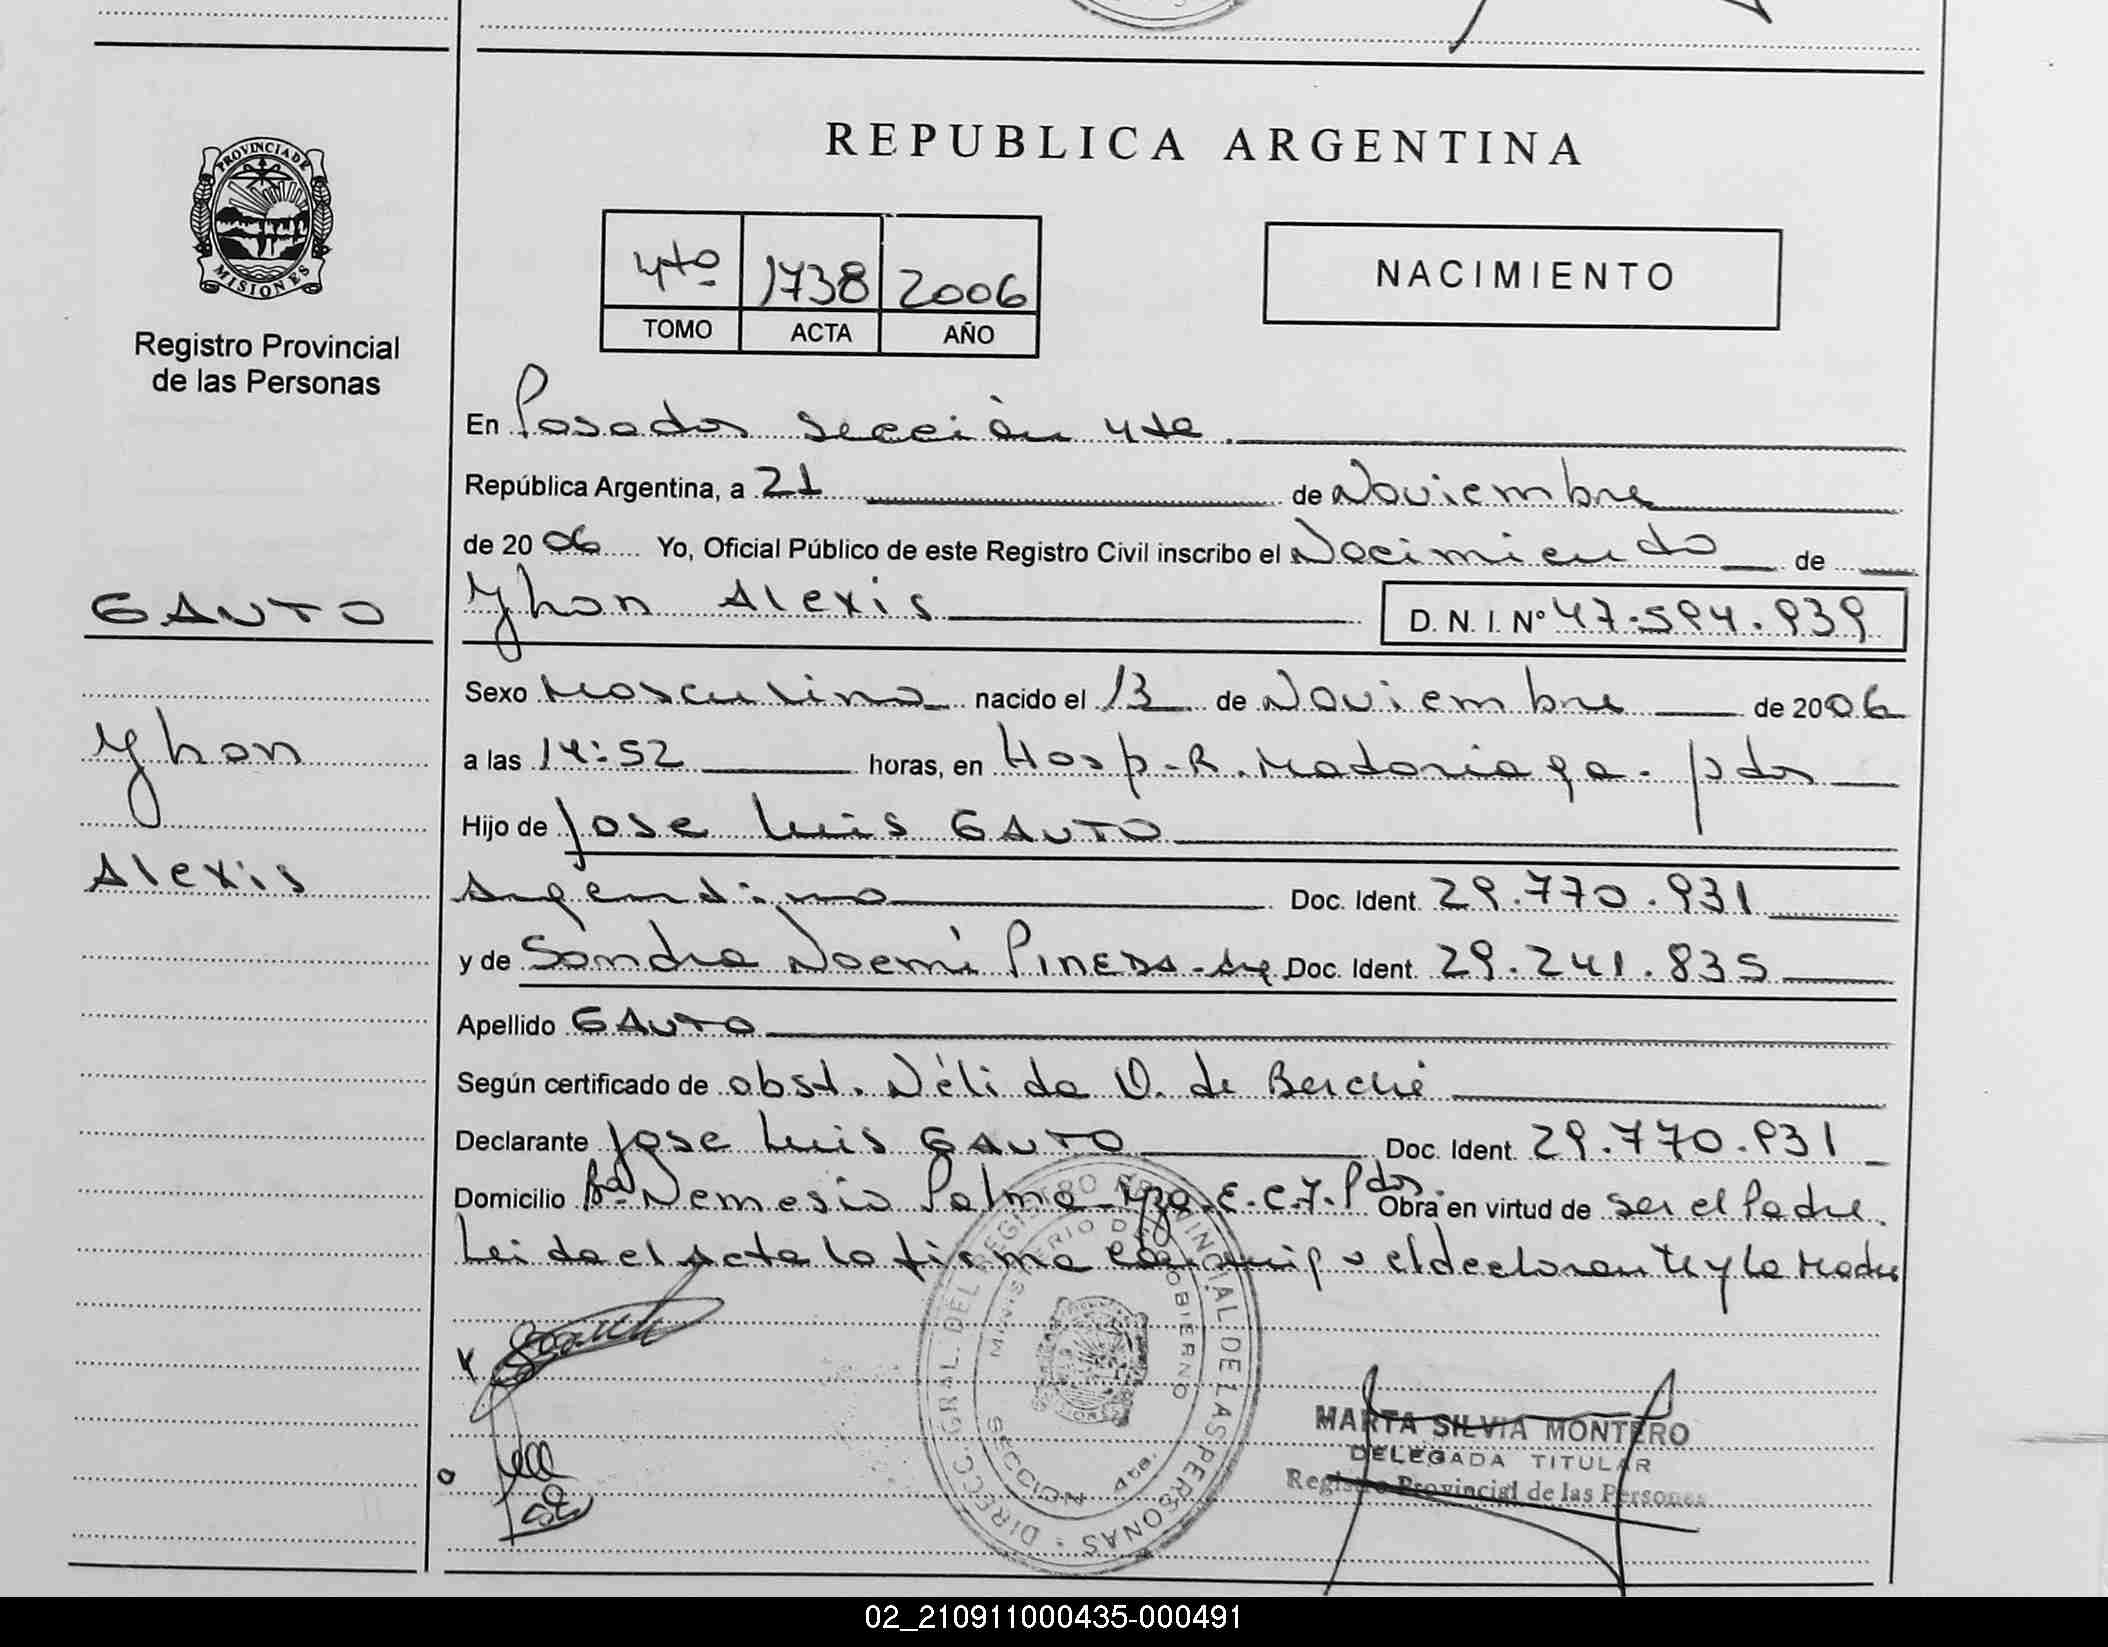 PROVINCIA DE
MISIONES
Registro Provincial
de las Personas
REPUBLICA ARGENTINA
4to 1738 2006
TOMO ACTA AÑO
NACIMIENTO
En Posadas sección 4ta
República Argentina, a 21 de Noviembre
de 2006 Yo, Oficial Público de este Registro Civil inscribo el Nacimiento de
GAUTO
Yhon Alexis D. N. I. Nº 47.594.939
Sexo Masculino nacido el 13 de Noviembre de 2006
Yhon
a las 14:52 horas, en Hosp. R. Madariaga. pdas
Hijo de Jose Luis GAUTO
Alexis
Argentino Doc. Ident. 29.770.931
y de Sandra Noemi PINEDA - Arg Doc. Ident. 29.241.835
Apellido GAUTO
Según certificado de obst. Nélida V. de Berché
Declarante Jose Luis GAUTO Doc. Ident. 29.770.931
Domicilio Bº Nemesio Palma - Mza. E. C. 7. Pdas. Obra en virtud de ser el Padre.
Leida el Acta la firma conmigo el declarante y la Madre
DIRECC. GRAL. DEL REGISTRO PROVINCIAL DE LAS PERSONAS
MINISTERIO DE GOBIERNO
SECCION 4ta.
MARTA SILVIA MONTERO
DELEGADA TITULAR
Registro Provincial de las Personas
02_210911000435-000491